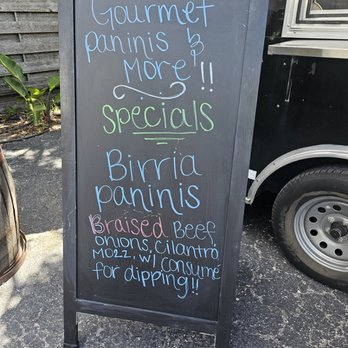 Gourmet
paninis &
More!!
specials
Birria
paninis
Braised Beef,
onions, cilantro
Mozz, w/ Consume
for dipping!!